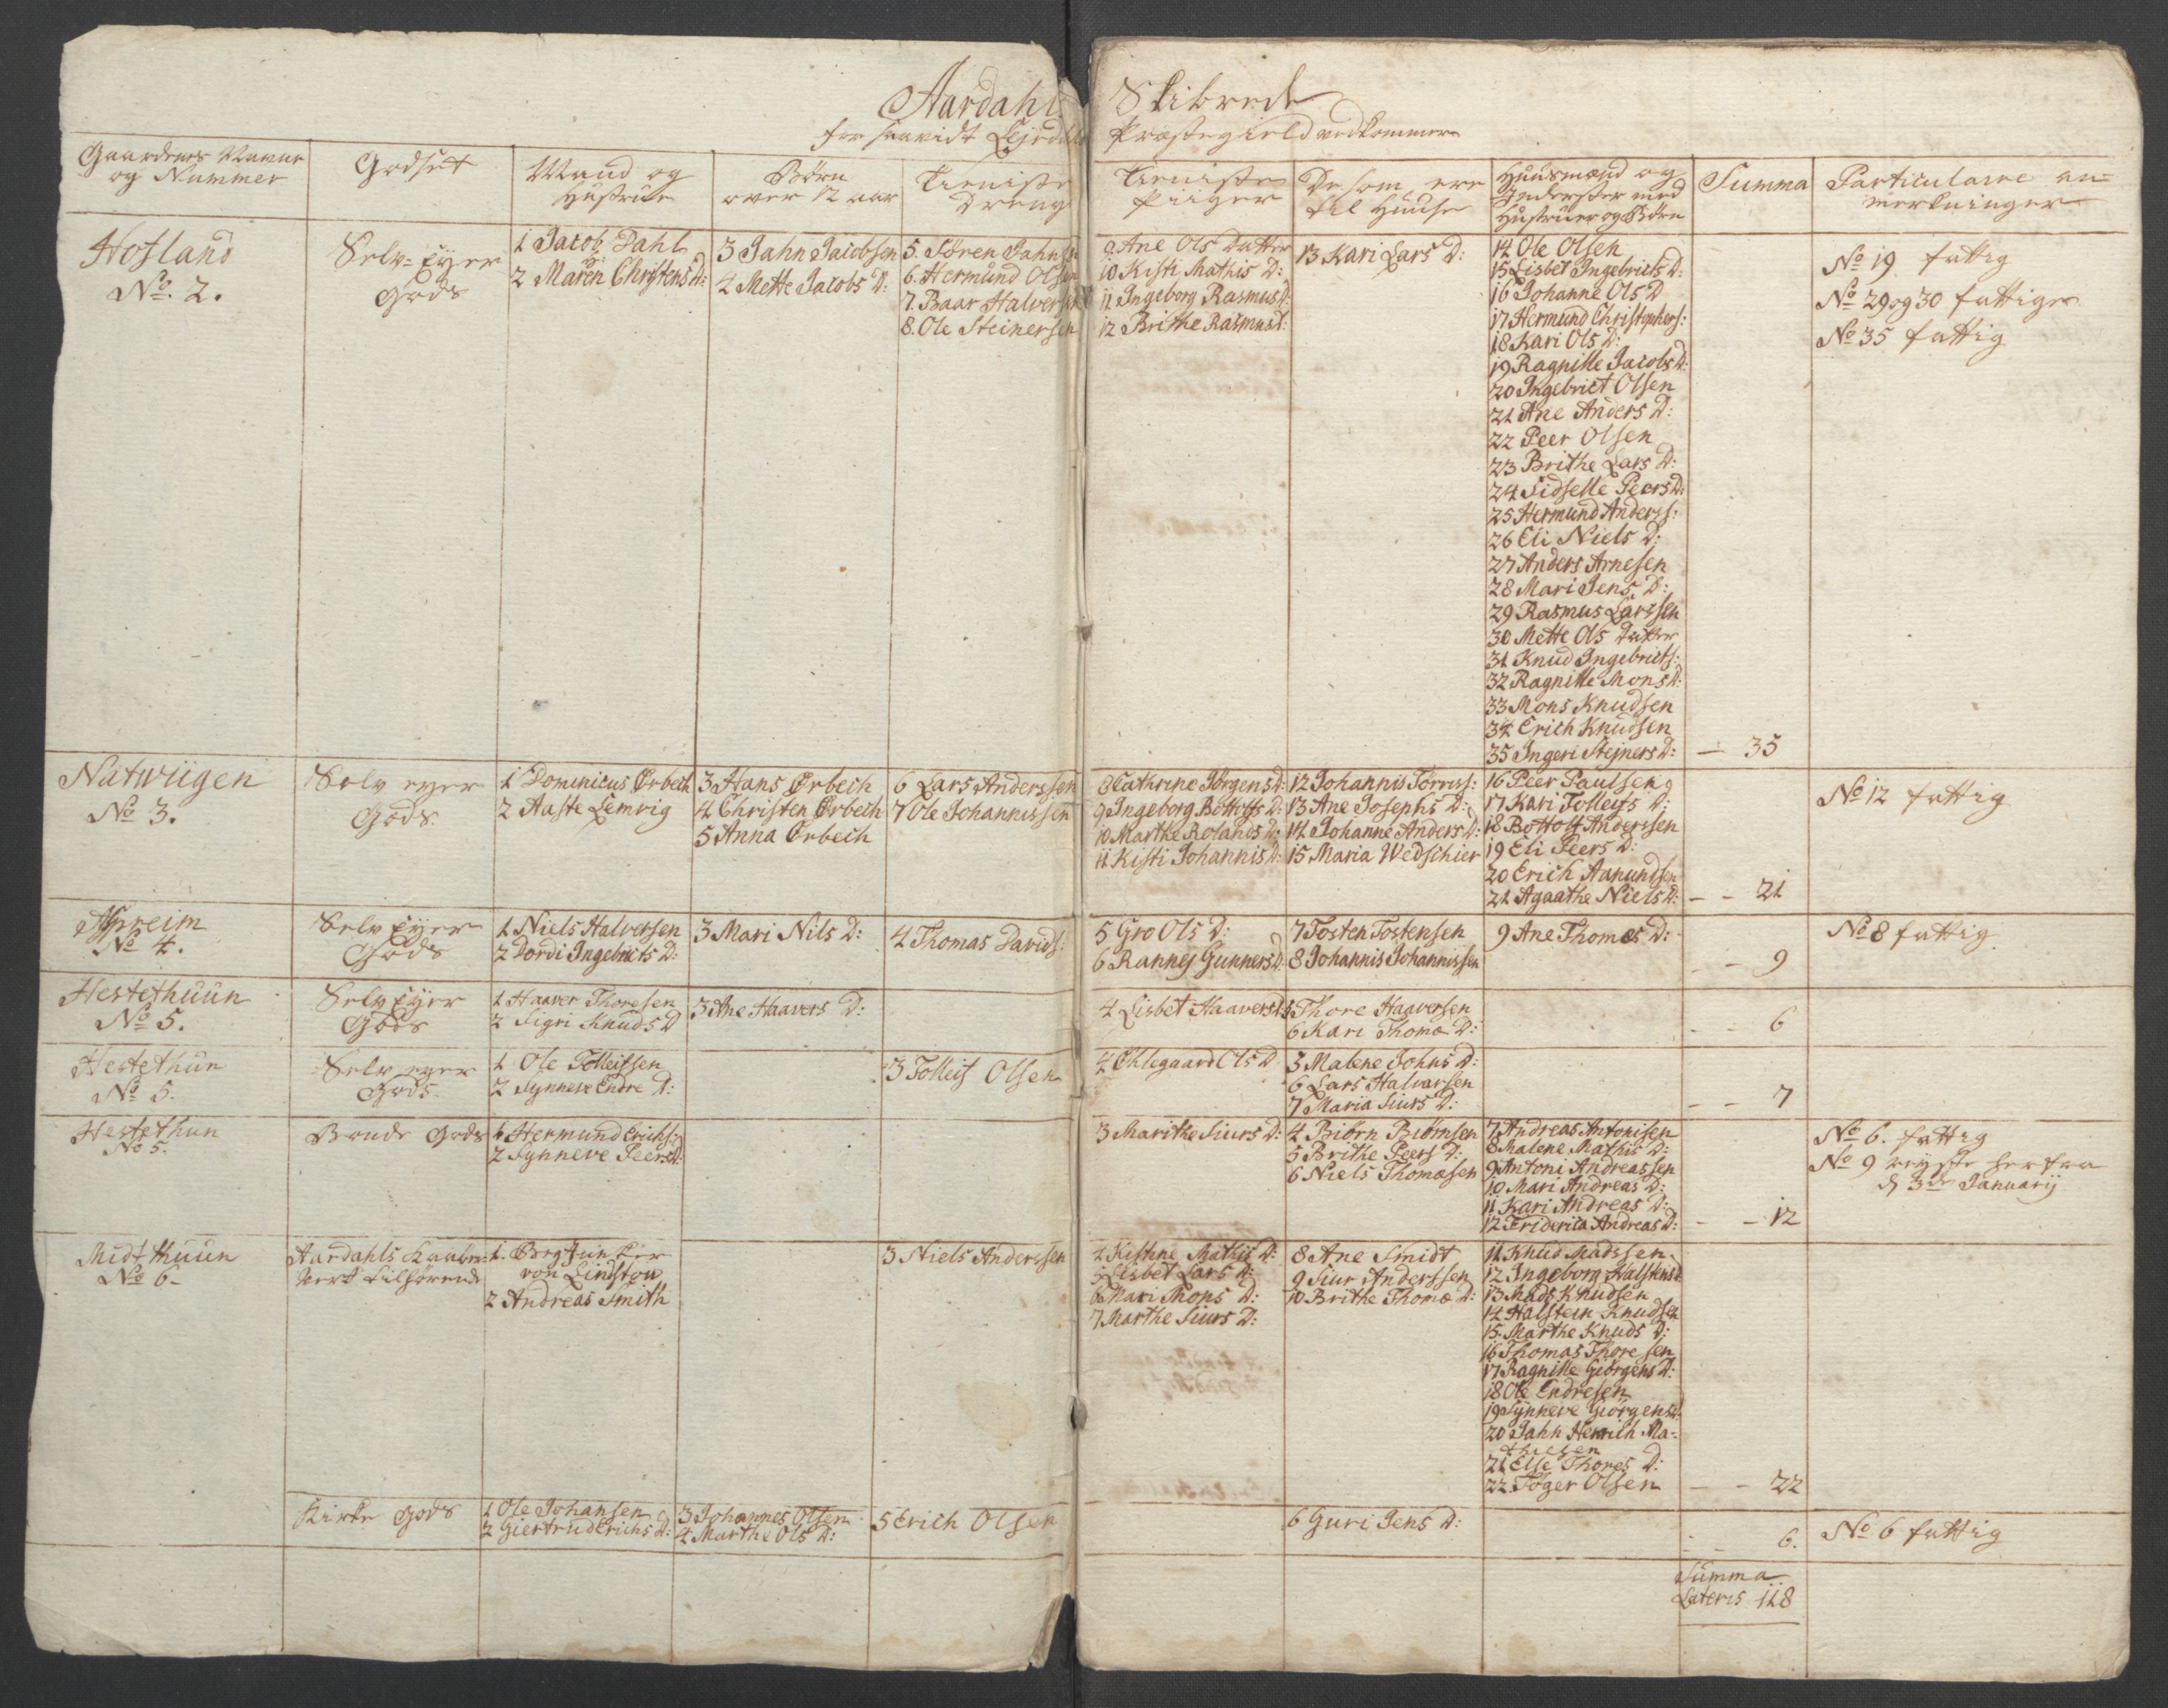 Aardahls Skibrede
for saavidt Lejrdals Præstegield vedkommer
Gaardenes Navne og Nummer
Godset
Mand og Hustrue
Børn over 12 aar
Tieniste Dreng
Tieniste Piiger
De som ere til Huuse
Huusmænd og Inderster med Hustruer og Børn
Summa
Particulaire anmerkninger
Hofland
No. 2.
Selv-Eyer
Gods
1 Jacob Dahl
2 Maren Christens D:
3 Jahn Jacobsen
4 Mette Jacobs D:
5. Søren Jahns
6. Hermund Olsen
7. Baar Halvers
8. Ole Steinersen
9 Ane Ols Datter
10 Kisti Mathis D:
11 Ingeborg Rasmus D:
12 Brithe Rasmus D:
13 Kari Lars D:
14 Ole Olsen
15 Lisbet Ingebricts D:
16 Johanne Ols D
17 Hermund Christophers:
18 Kari Ols D:
19 Ragnille Jacobs D:
20 Ingebrict Olsen
21 Ane Anders D:
22 Peer Olsen
23 Brithe Lars D:
24 Sidselle Peers D:
25 Hermund Anderss:
26 Eli Niels D:
27 Anders Arnesen
28 Mari Jens D:
29 Rasmus Larssen
30 Mette Ols Datter
31 Knud Ingebricts:
32 Ragnille Mons D:
33 Mons Knudsen
34 Erich Knudsen
35 Ingeri Stejners D:
— 35
No 19 fattig
No 29 og 30 fattige
No 35 fattig
Natwiigen
No 3.
Selv eyer
Gods
1 Dominicus Ørbech
2 Aaste Lemvig
3 Hans Ørbech
4 Christen Ørbech
5 Anna Ørbech
6 Lars Anderssen
7 Ole Johannissen
8 Cathrine Jörgens D:
9 Ingeborg Bottolfs D:
10 Marthe Rolands D:
11 Kisti Johannis D:
12 Johannis Torriss:
13 Ane Josephs D:
14 Johanne Anders D:
15 Maria Wedschier
16 Peer Paulsen
17 Kari Tolleifs D:
18 Bottolf Anderssen
19 Eli Peers D:
20 Erich Aamundsen
21 Agaathe Niels D:
- - 21
No 12 fattig
No 4.
Selv Eyer
Gods
1 Niels Halversen
2 Dordi Ingebricts D:
3 Mari Nils D:
4 Thomas Davids:
5 Gro Ols D:
6 Rannej Gunners D:
7 Tosten Tostensen
8 Johannis Johannissen
9 Ane Thomes D:
- - 9
No 8 fattig
Hestethuun
No 5.
Selv Eyer
Gods
1 Haaver Thoresen
2 Sigri Knuds D
3 Ane Haavers D:
4 Lisbet Haavers D:
5 Thore Haaversen
6 Kari Thomæ D:
- - 6
Hestethun
No 5.
Selv eyer
Gods
1 Ole Tolleifsen
2 Synneve Endre D:
3 Tolleif Olsen
4 Ohlegaard Ols D
3 Malene Johns D:
6 Lars Halvarsen
7 Maria Siurs D:
- - 7
Hestethun
No 5.
Bonde Gods
1 Hermund Erichs:
2 Synneve Peers D:
3 Marithe Siurs D:
4 Biørn Biørnsen
5 Brithe Peers D:
6 Niels Thomæsen
7 Andreas Antonisen
8 Malene Mathis D:
9 Antoni Andreassen
10 Mari Andreas D:
11 Kari Andreas D:
12 Friderica Andreas D:
- - 12
No 6. fattig
No 9 reyste herfra
d 3de Januarij
Midthuun
No 6-
Aardahls Kaaber-
Verk tilhørende
1. Bergjunker
von Lindstow
2 Andreas Smith
3 Niels Anderssen
4 Kistine Mathis D:
5 Lisbet Lars D:
6 Mari Mons D:
7 Marthe Siurs D:
8 Ane Smidt
9 Siur Anderssen
10 Brithe Thomæ D:
11 Knud Madssen
12 Ingeborg Halstens D
13 Mads Knudsen
14 Halstein Knudsen
15. Marthe Knuds D:
16 Thomas Thoresen
17 Ragnille Giörgens D:
18 Ole Endresen
19 Synneve Giörgens D:
20 Jahn Henrich Ma-
thiesen
21 Else Thores D:
22. Toger Olsen
- - 22
Kirke Gods
1 Ole Johansen
2 Giertrud Erichs D:
3 Johannes Olsen
4 Marthe Ols D:
5 Erich Olsen
6 Guri Jens D:
- - 6.
No 6 fattig
Summa
Lateris 118